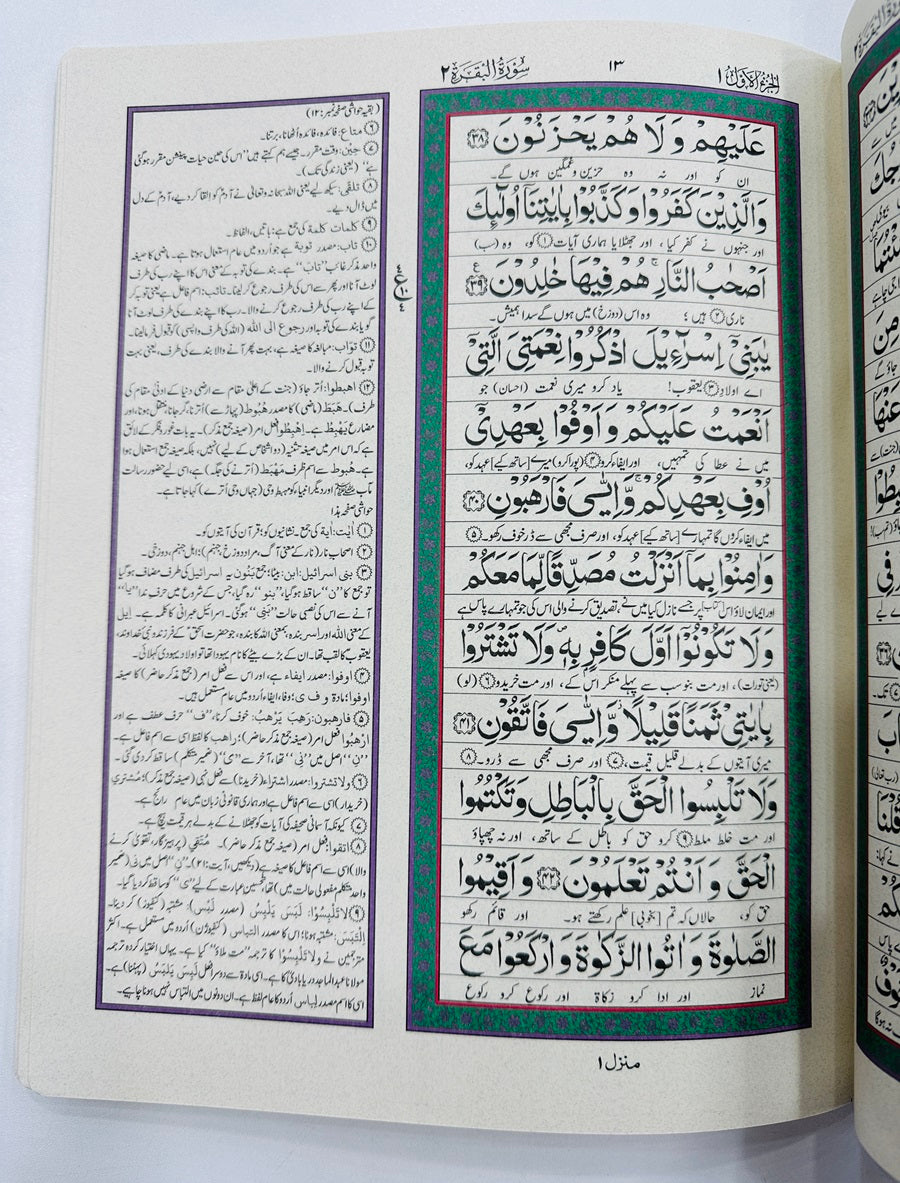 الجزء الاول ١
١٣
سورة البقرة ٢
عَلَيْهِمْ وَلَا هُمْ يَحْزَنُوْنَ ﴿٣٨﴾
ان کو اور نہ وہ حزین و غمگین ہوں گے۔
وَالَّذِيْنَ كَفَرُوْا وَكَذَّبُوْا بِاٰيٰتِنَاۤ اُولٰٓئِكَ
اور جنہوں نے کفر کیا، اور جھٹلایا ہماری آیات ① کو، وہ (سب)
اَصْحٰبُ النَّارِ ۚ هُمْ فِيْهَا خٰلِدُوْنَ ﴿٣٩﴾ ع
ناری ② ہیں؛ وہ اس (دوزخ) میں ہوں گے سدا ہمیش۔
يٰبَنِيْۤ اِسْرَآءِيْلَ اذْكُرُوْا نِعْمَتِيَ الَّتِيْۤ
اے اولادِ ③ یعقوب! یاد کرو میری نعمت (احسان) جو
اَنْعَمْتُ عَلَيْكُمْ وَاَوْفُوْا بِعَهْدِيْۤ
میں نے عطا کی تمہیں، اور ایفاء کرو ④ (پورا کرو) میرے [ساتھ کیے] عہد کو،
اُوْفِ بِعَهْدِكُمْ ۚ وَاِيَّايَ فَارْهَبُوْنِ ﴿٤٠﴾
میں ایفاء کرؤں گا تمہارے [ساتھ کیے] عہد کو، اور صرف مجھی سے ڈر خوف رکھو۔ ⑤
وَاٰمِنُوْا بِمَاۤ اَنْزَلْتُ مُصَدِّقًا لِّمَا مَعَكُمْ
اور ایمان لاؤ اس [کتاب] پر جسے نازل کیا میں نے، تصدیق کرنے والی اس کی جو تمہارے پاس ہے
وَلَا تَكُوْنُوْۤا اَوَّلَ كَافِرٍۭ بِهٖ ۪ وَلَا تَشْتَرُوْا
(یعنی تورات)، اور مت بنو سب سے پہلے منکر اس کے، اور مت خریدو ⑥ (لو)
بِاٰيٰتِيْ ثَمَنًا قَلِيْلًا ۫ وَّاِيَّايَ فَاتَّقُوْنِ ﴿٤١﴾
میری آیتوں کے بدلے قلیل قیمت، ⑦ اور صرف مجھی سے ڈرو۔ ⑧
وَلَا تَلْبِسُوا الْحَقَّ بِالْبَاطِلِ وَتَكْتُمُوا
اور مت خلط ملط ⑨ کرو حق کو باطل کے ساتھ، اور نہ چھپاؤ
الْحَقَّ وَاَنْتُمْ تَعْلَمُوْنَ ﴿٤٢﴾ وَاَقِيْمُوا
حق کو، حالاں کہ تم [بخوبی] علم رکھتے ہو۔ اور قائم رکھو
الصَّلٰوةَ وَاٰتُوا الزَّكٰوةَ وَارْكَعُوْا مَعَ
نماز اور ادا کرو زکاة اور رکوع کرو رکوع
منزل ١
(بقیہ حواشی صفحہ نمبر: ۱۲)
⑥ متاع: فائدہ، فائدہ اُٹھانا، برتنا۔
⑦ حین: وقت مقرر۔ جیسے ہم کہتے ہیں "اس کی حین حیات پینشن مقرر ہوگئی
ہے" (یعنی زندگی تک)۔
⑧ تلقّی: سیکھ لیے یعنی اللہ سبحانہ وتعالی نے آدمؑ کو القا کر دیے، آدمؑ کے دل
میں ڈال دیے۔
⑨ کلمات کلمة کی جمع ہے: باتیں، الفاظ۔
⑩ تاب: مصدر توبة ہے جو اُردو میں عام استعمال ہوتا ہے۔ ماضی کا صیغہ
واحد مذکر غائب "تابَ" ہے۔ بندے کی توبہ کے معنی اس کا اپنے رب کی طرف
لوٹ آنا اور پھر سے اس کی طرف رجوع کر لینا۔ تائب: اسم فاعل ہے یعنی توبہ کر
کے اپنے رب کی طرف رجوع کرنے والا۔ رب کا اپنے بندے کی طرف لوٹ آنا
گویا بندے کی توبہ اور رجوع الی اللہ (اللہ کی طرف واپسی) کو قبول فرما لینا۔
⑪ تواب: مبالغہ کا صیغہ ہے، بہت پھر آنے والا بندے کی طرف، یعنی بہت
توبہ قبول کرنے والا۔
⑫ اهبطوا: اُتر جاؤ (جنت کے اعلیٰ مقام سے ارضی دنیا کے ادنیٰ مقام کی
طرف)۔ هَبَطَ (ماضی) کا مصدر هُبُوط (پہاڑ سے) اُترنا، گر جانا، منتقل ہونا، اور
مضارع يَهْبِطُ ہے۔ اِهْبِطُوا فعل امر (صیغہ جمع مذکر)۔ یہ بات غور و فکر کے لائق
ہے کہ اس امر میں صیغہ تثنیہ (دو اشخاص کے لیے) نہیں، بلکہ صیغہ جمع استعمال ہوا
ہے۔ هُبوط سے اسم ظرف مَهْبَط (اُترنے کی جگہ) ہے، اسی لیے حضور رسالت
مآب ﷺ اور دیگر انبیاء کو مہبطِ وحی (جہاں وحی اُترے) کہا جاتا ہے۔
حواشی صفحہ ہذا
① اٰیٰت: اٰیة کی جمع۔ نشانیوں کو؛ قرآن کی آیتوں کو۔
② اصحاب نار (نار کے معنی آگ۔ مراد دوزخ؛ جہنم)؛ اہل جہنم، دوزخی۔
③ بنی اسرائیل: ابن: بیٹا؛ جمع بَنُون۔ یہ اسرائیل کی طرف مضاف ہوگیا
تو جمع کا "ن" ساقط ہوگیا، "بنو" رہ گیا، جس کے شروع میں حرف ندا "یا"
آنے سے اس کی نصبی حالت "بَنِی" ہوگئی۔ اسرائیل عبرانی کا کلمہ ہے۔ اِیل
کے معنی اللہ اور اسر بندہ بمعنی اللہ کا بندہ، جو حضرت اسحٰقؑ کے فرزند نبی خداوند،
یعقوبؑ کا لقب تھا۔ ان کے بڑے بیٹے کا نام یہودا تھا تو اولاد یہودی کہلائی۔
④ اوفوا: مصدر ایفاء ہے، اور اس سے فعل امر (جمع مذکر حاضر) کا صیغہ
اوفوا؛ مادہ و ف ی؛ وفا، ایفاء اُردو میں عام مستعمل ہیں۔
⑤ فارهبون: رَهِبَ يَرْهَبُ: خوف کرنا، "ف" حرف عطف ہے اور
اِرْهَبُوا فعل امر (صیغہ جمع مذکر حاضر)؛ راہب کا لفظ اسی سے اسم فاعل ہے۔
"نِ" اصل میں "نِی" تھا، آخر سے "ی" (ضمیر متکلم) ساقط کر دی گئی۔
⑥ ولا تشتروا: مصدر اشتراء (خریدنا) سے فعل نہی (صیغہ جمع مذکر)؛ مُشتری
(خریدار) اسی سے اسم فاعل ہے اور ہماری قانونی زبان میں عام رائج ہے۔
⑦ کیونکہ آسمانی صحیفہ کی آیات کو جھٹلانے کے بدلے ہر قیمت ہیچ ہے۔
⑧ اتقوا: فعل امر (صیغہ جمع مذکر حاضر)۔ مُتَّقِی (پرہیزگار، تقویٰ کرنے
والا) اسی سے اسم فاعل کا صیغہ ہے (دیکھیں، آیت: ۲۱)۔ "نِ" اصل میں نِی (ضمیر
واحد متکلم مفعولی حالت میں) تھا؛ تحسین عبارت کے لیے "ی" کو ساقط کر دیا گیا۔
⑨ لا تَلْبِسُوا: لَبَسَ يَلْبِسُ (مصدر لَبْس): مشتبہ (کنفیوز) کر دینا۔
اِلْتَبَسَ: مشتبہ ہونا؛ اس کا مصدر التباس (کنفیوژن) اُردو میں مستعمل ہے۔ اکثر
مترجمین نے ولا تَلْبِسُوا کا ترجمہ "مت ملاؤ" کیا ہے۔ یہاں اختیار کردہ ترجمہ
مولانا عبدالماجد دریابادی کا ہے۔ اسی مادہ سے دوسرا فعل لَبِسَ يَلْبَسُ (پہننا) ہے۔
اسی کا اسم مصدر لباس اُردو کا عام لفظ ہے۔ ان دونوں میں التباس نہیں ہونا چاہیے۔